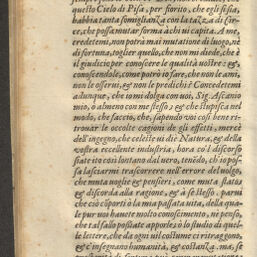 questo Cielo di Pisa, per fiorito, che egli si sia,
habbia tanta somiglianza con la tazza di Cir-
ce, che possa mutar forma à chi vi capita. A me,
credetemi, non potrà mai mutatione di luogo, nè
di fortuna, toglier quello, che non mi diede, che è
il giudicio per conoscere le qualità vostre: &
conoscendole, come potrò io fare, che non le ami,
non le osservi, & non le predichi? Concedetemi
adunque, che io mi dolga con voi, Sig. Ascanio
mio, ò almeno con me stesso; & che stupisca nel
modo, che faccio, che, sapendo voi così bene ri-
trouar le occulte cagioni de gli effetti, mercè
dell'ingegno, che celeste vi diè Natura, & della
vostra eccellente industria, hora co'l discorso
siate ito così lontano dal vero, tenedo, ch'io pos-
sa lasciarmi trascorrere nell'errore del volgo,
che muta voglie & pensieri, come muta stato;
& discorda alle ragione, & à se stesso. parmi
che ciò riporti ò la mia passata vita, della qua-
le pur voi hauete molto conoscimento, nè penso,
che tal fallo possiate apporle; ò lo studio di quel-
le lettere, che da ogni vil costume ci ritraggono,
& c'insegnano humanità, & costanza. ma, se